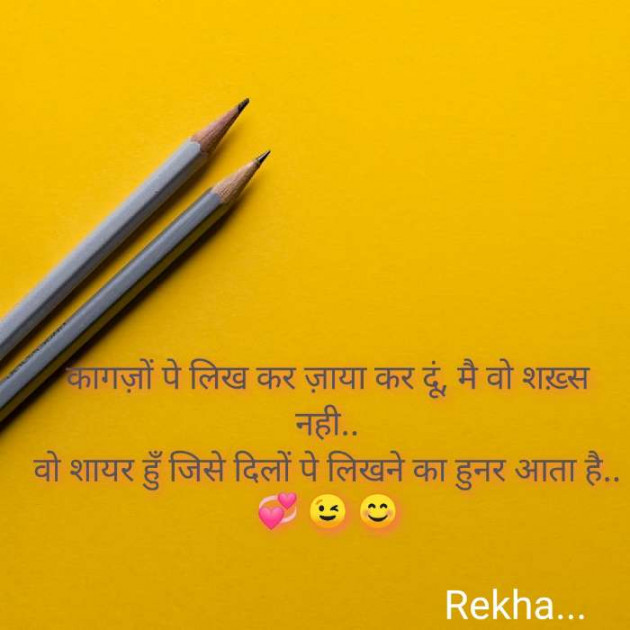 कागज़ों पे लिख कर ज़ाया कर दूं, मै वो शख़्स
नही..
वो शायर हुँ जिसे दिलों पे लिखने का हुनर आता है..
💞 😉 😊
Rekha...